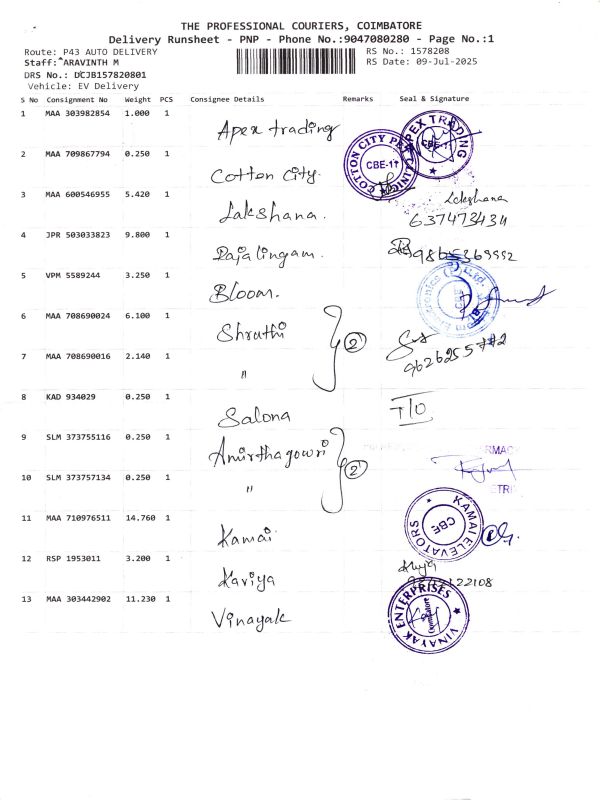 THE PROFESSIONAL COURIERS, COIMBATORE
Delivery Runsheet - PNP - Phone No.:9047080280 - Page No.:1
Route: P43 AUTO DELIVERY RS No.: 1578208
Staff: ARAVINTH M RS Date: 09-Jul-2025
DRS No.: DCJB157820801
Vehicle: EV Delivery
S No Consignment No Weight PCS Consignee Details Remarks Seal & Signature
1 MAA 303982854 1.000 1 Apex trading APEX TRADING CBE-11
2 MAA 709867794 0.250 1 Cotton City. COTTON CITY CBE-11
3 MAA 600546955 5.420 1 Lakshana. Lakshana
637473434
4 JPR 503033823 9.800 1 Rajalingam.
5 VPM 5589244 3.250 1 Bloom.
6 MAA 708690024 6.100 1 Shruthi 2
7 MAA 708690016 2.140 1 "
8 KAD 934029 0.250 1 Salona T/O
9 SLM 373755116 0.250 1 Amirthagowri 2
10 SLM 373757134 0.250 1 "
11 MAA 710976511 14.760 1 Kamai KAMAI ELEVATORS CBE
12 RSP 1953011 3.200 1 Kaviya
13 MAA 303442902 11.230 1 Vinayak VINAYAK ENTERPRISES Coimbatore